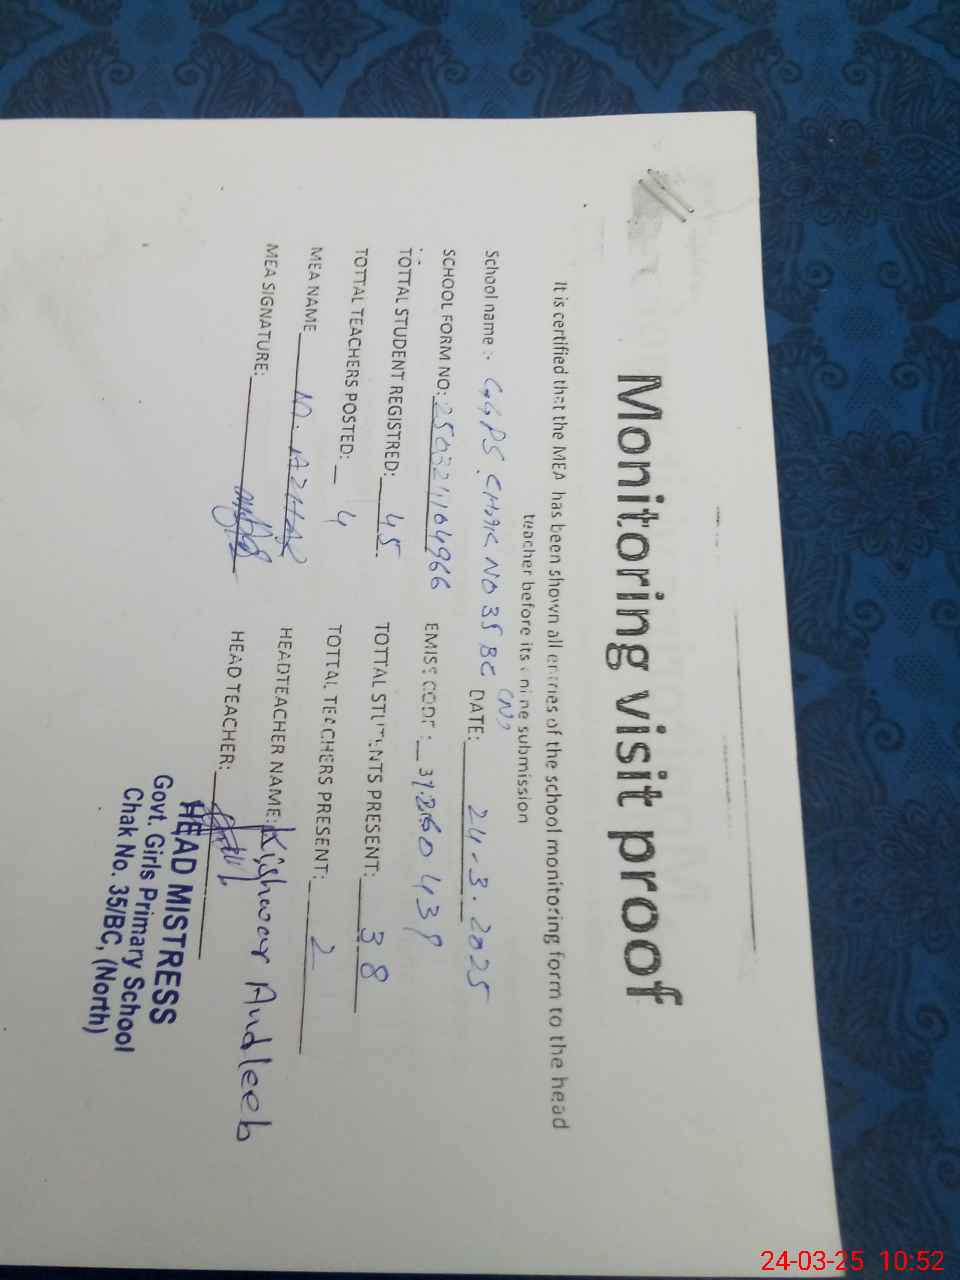 Monitoring visit proof
It is certified that the MEA has been shown all entries of the school monitoring form to the head
teacher before its submission
School name :- GGPS. CHAK NO 35 BC (N) DATE: 24-3-2025
SCHOOL FORM NO: EMISS CODE:
TOTTAL STUDENT REGISTRED: 45 TOTTAL STUDENTS PRESENT: 38
TOTTAL TEACHERS POSTED: 4 TOTTAL TEACHERS PRESENT: 2
MEA NAME M. AZHAR HEADTEACHER NAME: Kishwar Andleeb
MEA SIGNATURE: HEAD TEACHER:
HEAD MISTRESS
Govt. Girls Primary School
Chak No. 35/BC, (North)
24-03-25 10:52